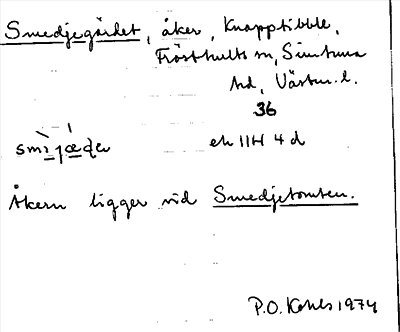 Smedjegärdet, åker, Knapptibble,
Frösthults sn, Simtuna
hd, Västm. l.
36
smìjǽḍeṇ ek 11H 4 d
Åkern ligger vid Smedjetomten.
P.O. Kahls 1974